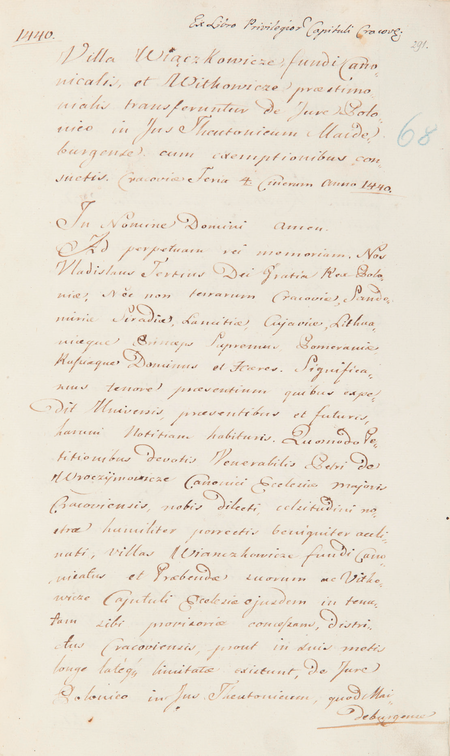 Ex Libro Privilegior Capituli Cracov:
1440.
291.
68
Villa Wiączkowicze fundi Cano-
nicalis, et Withowicze præstimo-
nialis transferuntur de Jure Polo-
nico in Jus Theutonicum Maide-
burgense cum exemptionibus con-
suetis. Cracoviæ Feria 4 Cinerum Anno 1440.
In Nomine Domini Amen.
Ad perpetuam rei memoriam. Nos
Vladislaus Tertius Dei Gratia Rex Polo-
niæ, Nec non terrarum Cracoviæ, Sando-
miriæ Siradiæ, Lancitiæ, Cujaviæ, Lithua-
niæque Princeps Supremus Pomeraniæ
Rufsiæque Dominus et Hæres. Significa-
mus tenore præsentium quibus expe-
dit Universis, præsentibus et futuris,
harum Notitiam habituris. Quomodo Pe-
titionibus devotis Venerabilis Petri de
Wroczÿmowicze Canonici Ecclesiæ majoris
Cracoviensis, nobis dilecti, celsitudini no-
stræ humiliter porrectis benigniter accli-
nati, villas Wianczkowicze fundi Cano-
nicalus et Præbendæ suarum ac Witho-
wicze Capituli Ecclesiæ ejusdem in tenu-
tam sibi provisoriæ consistens, distri-
ctus Cracoviensis, prout in suis metis
longe lateq limitatæ existunt, de Jure
Polonico in Jus Theutonicum, quod Mai-
deburgense